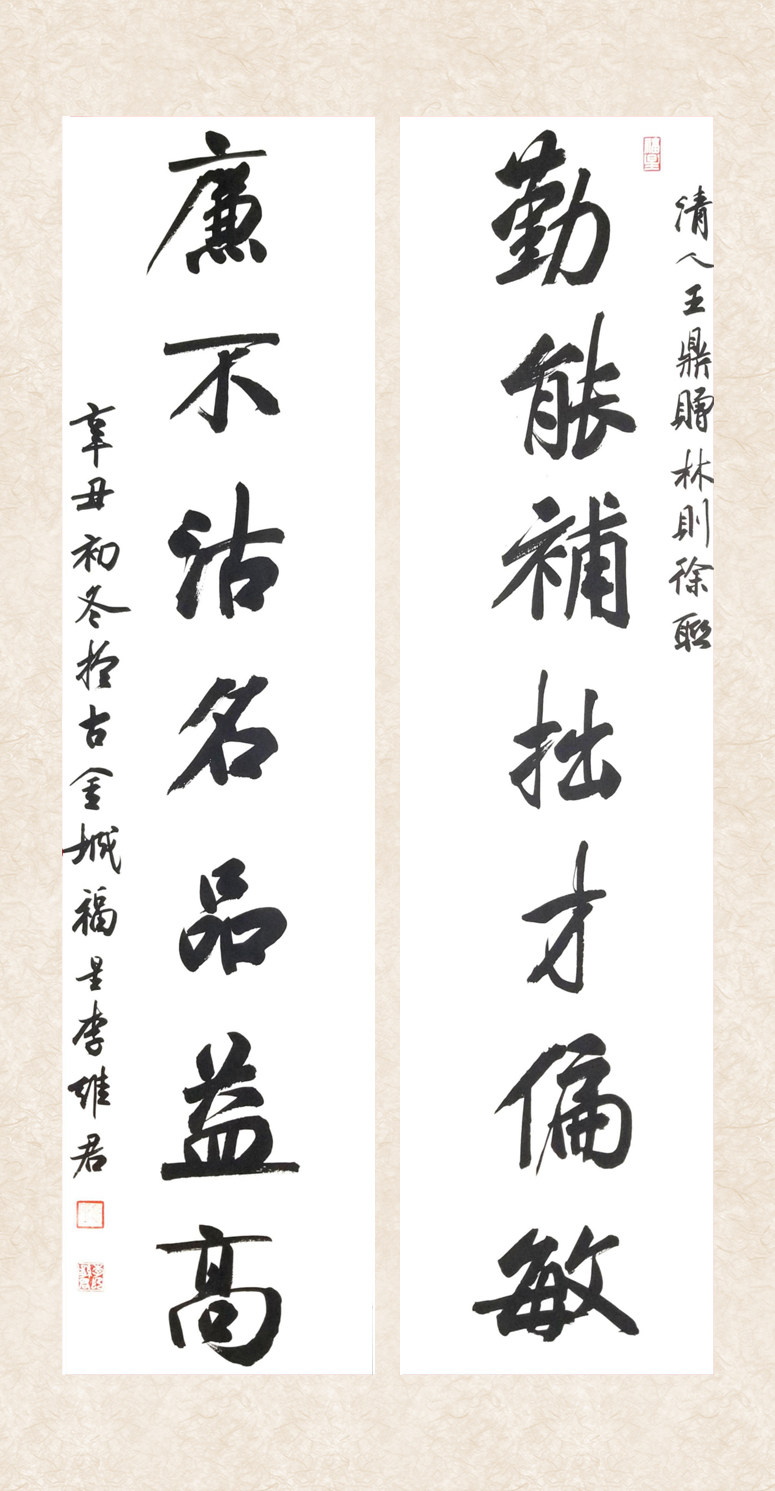 清人王鼎贈林則徐聯
勤能補拙才偏敏
廉不沽名品益高
辛丑初冬於古金城福星李維君